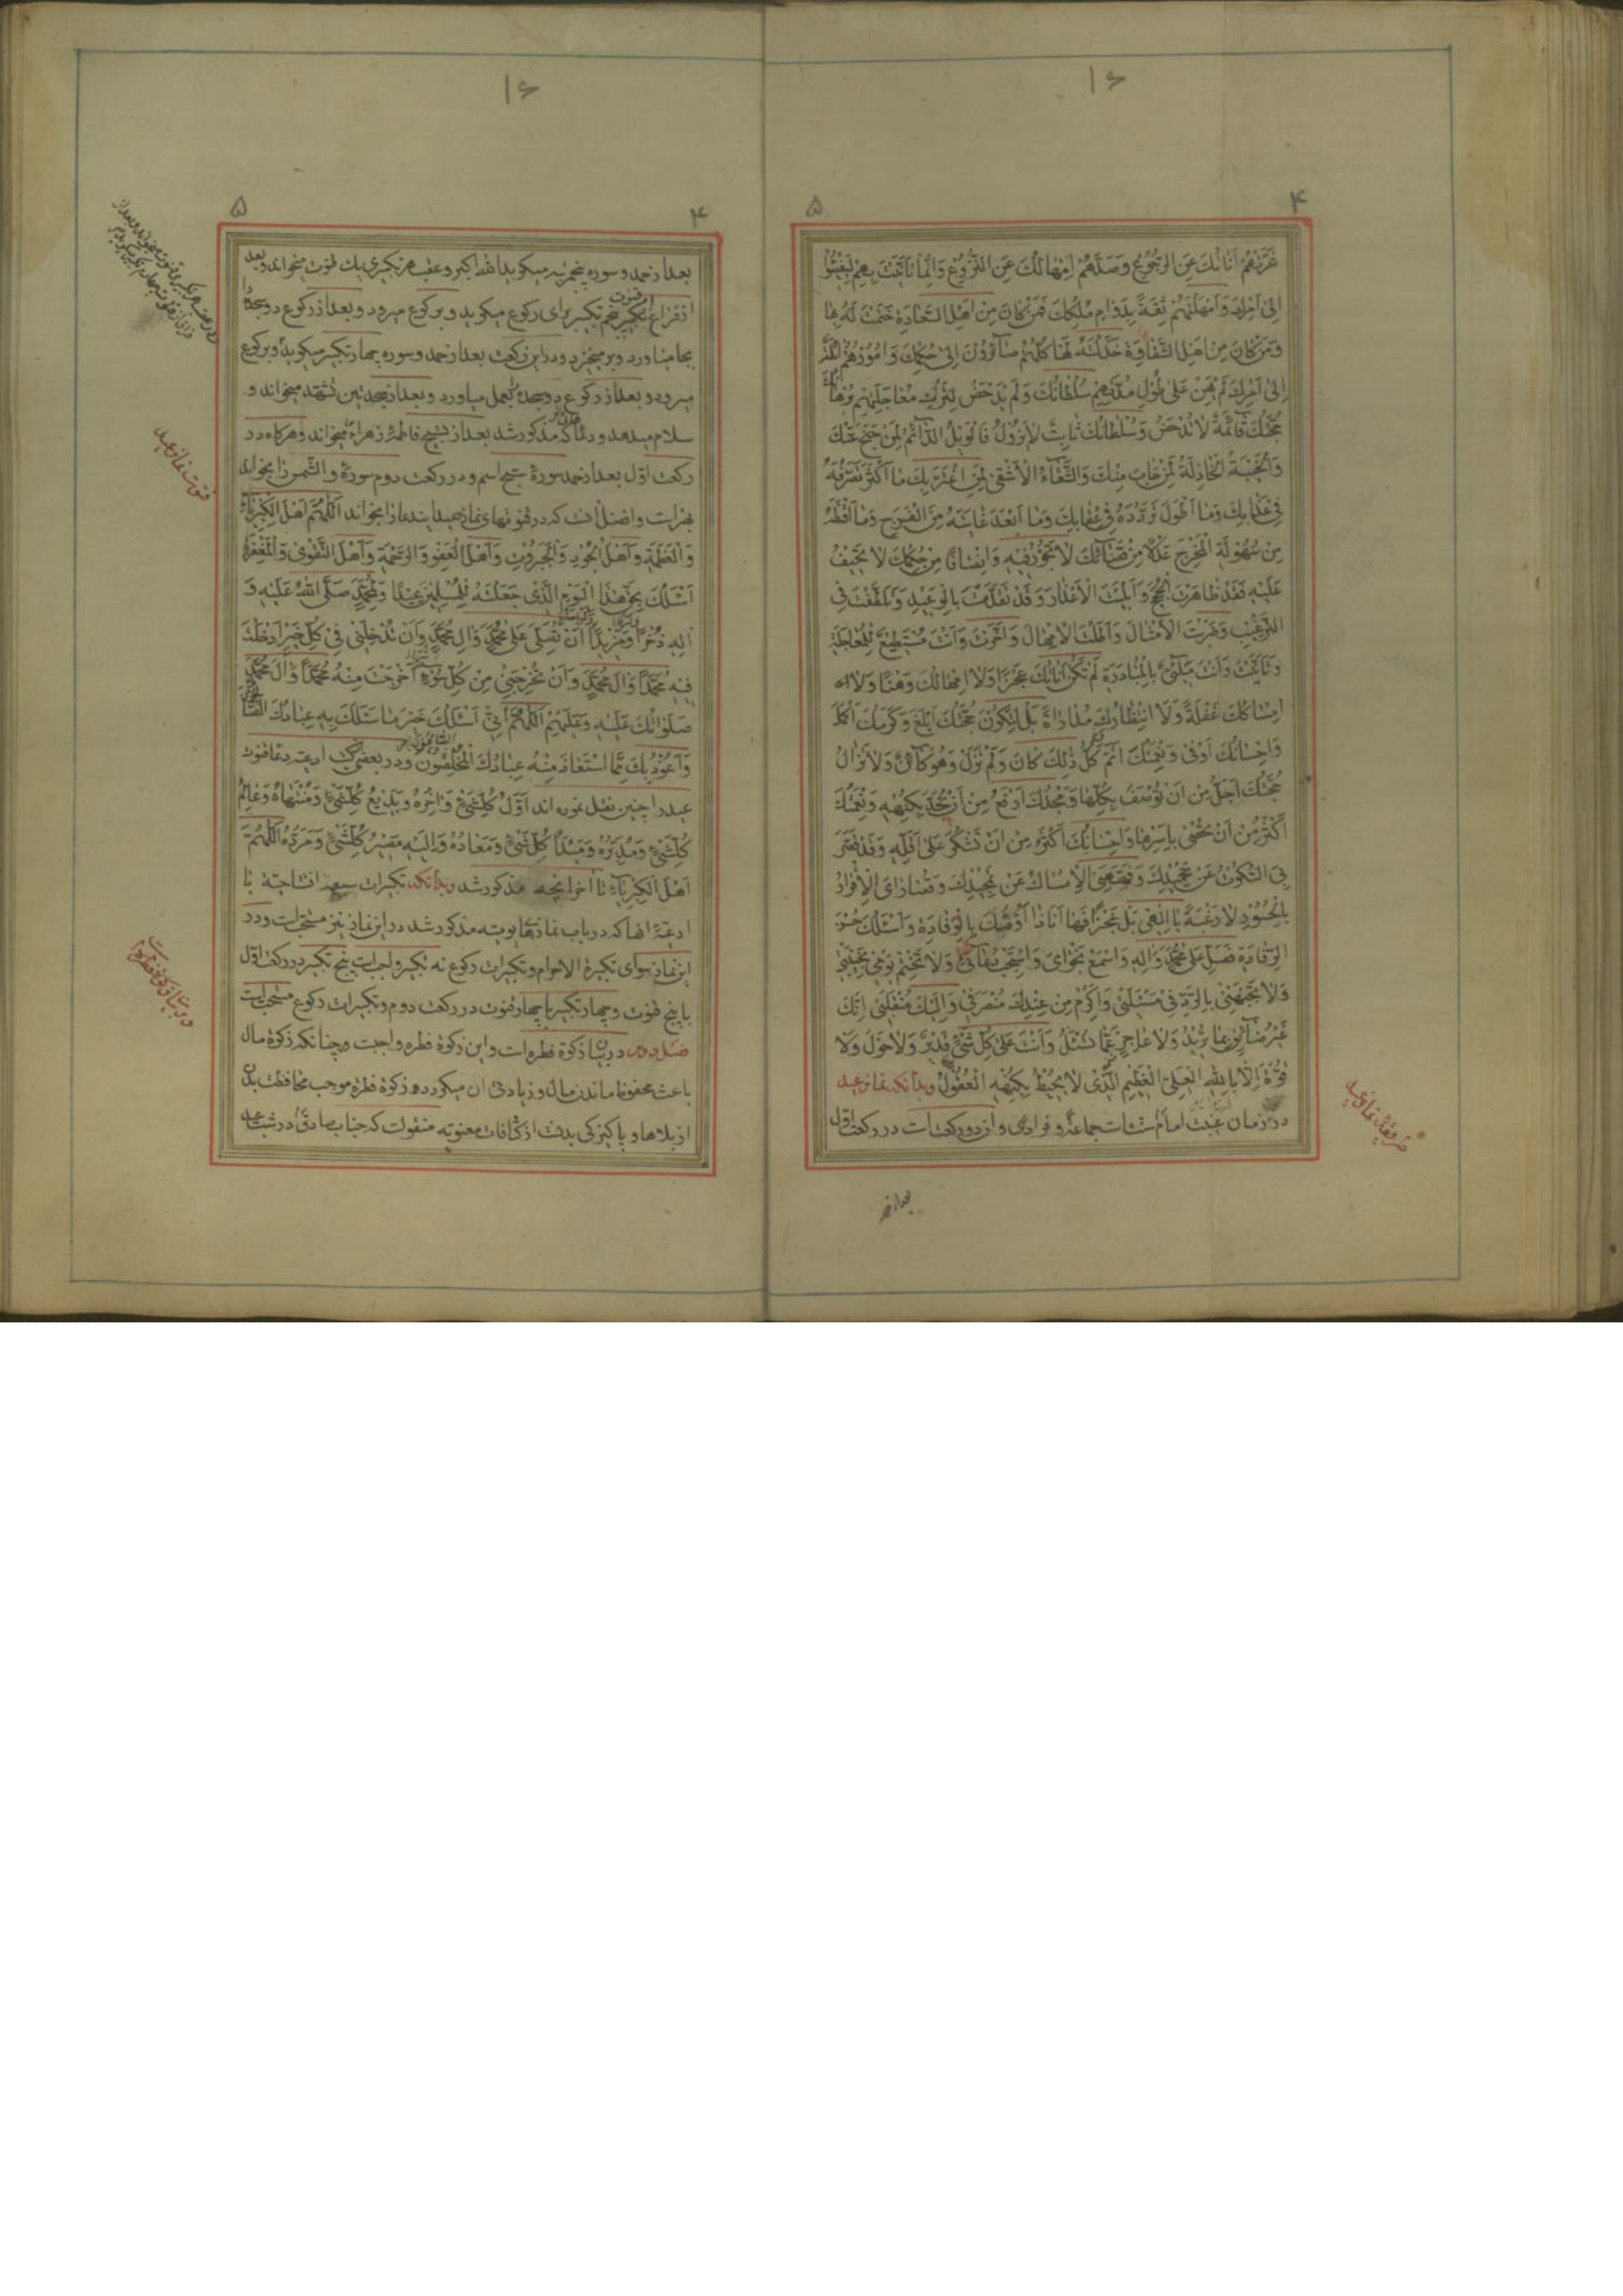 ۱۶
۴
۵
غَرَّتْهُمْ اَنَاتُكَ عَنِ الرُّجُوعِ وَصَدَّهُمْ اِمْهَالُكَ عَنِ النُّزُوعِ وَاِنَّمَا تَاَنَّيْتَ بِهِمْ لِيَفِيئُوا
اِلى اَمْرِكَ وَاَمْهَلْتَهُمْ ثِقَةً بِدَوَامِ مُلْكِكَ فَمَنْ كَانَ مِنْ اَهْلِ السَّعَادَةِ خَتَمْتَ لَهُ بِهَا
وَمَنْ كَانَ مِنْ اَهْلِ الشَّقَاوَةِ خَذَلْتَهُ لَهَا كُلُّهُمْ صَائِرُونَ اِلى حُكْمِكَ وَاُمُورُهُمْ ائِلَةٌ
اِلى اَمْرِكَ لَمْ يَهِنْ عَلى طُولِ مُدَّتِهِمْ سُلْطَانُكَ وَلَمْ يَدْحَضْ لِتَرْكِ مُعَاجَلَتِهِمْ بُرْهَانُكَ
حُجَّتُكَ قَائِمَةٌ لَا تُدْحَضُ وَسُلْطَانُكَ ثَابِتٌ لَا يَزُولُ فَالْوَيْلُ الدَّائِمُ لِمَنْ جَنَحَ عَنْكَ
وَالْخَيْبَةُ الْخَاذِلَةُ لِمَنْ خَابَ مِنْكَ وَالشَّقَاءُ الْاَشْقى لِمَنِ اغْتَرَّ بِكَ مَا اَكْثَرَ تَصَرُّفَهُ
فِى عَذَابِكَ وَمَا اَطْوَلَ تَرَدُّدَهُ فِى عِقَابِكَ وَمَا اَبْعَدَ غَايَتَهُ مِنَ الْفَرَجِ وَمَا اَقْنَطَهُ
مِنْ سُهُولَةِ الْمَخْرَجِ عَدْلًا مِنْ قَضَائِكَ لَا تَجُورُ فِيهِ وَاِنْصَافًا مِنْ حُكْمِكَ لَا تَحِيفُ
عَلَيْهِ فَقَدْ ظَاهَرْتَ الْحُجَجَ وَاَبْلَيْتَ الْاَعْذَارَ وَقَدْ تَقَدَّمْتَ بِالْوَعِيدِ وَتَلَطَّفْتَ فِى
التَّرْغِيبِ وَضَرَبْتَ الْاَمْثَالَ وَاَطَلْتَ الْاِمْهَالَ وَاَخَّرْتَ وَاَنْتَ مُسْتَطِيعٌ لِلْمُعَاجَلَةِ
وَتَاَنَّيْتَ وَاَنْتَ مَلِىءٌ بِالْمُبَادَرَةِ لَمْ تَكُنْ اَنَاتُكَ عَجْزًا وَلَا اِمْهَالُكَ وَهْنًا وَلَا
اِمْسَاكُكَ غَفْلَةً وَلَا انْتِظَارُكَ مُدَارَاةً بَلْ لِتَكُونَ حُجَّتُكَ اَبْلَغَ وَكَرَمُكَ اَكْمَلَ
وَاِحْسَانُكَ اَوْفى وَنِعْمَتُكَ اَتَمَّ كُلُّ ذلِكَ كَانَ وَلَمْ تَزَلْ وَهُوَ كَائِنٌ وَلَا تَزَالُ
حُجَّتُكَ اَجَلُّ مِنْ اَنْ تُوصَفَ بِكُلِّهَا وَمَجْدُكَ اَرْفَعُ مِنْ اَنْ يُحَدَّ بِكُنْهِهِ وَنِعْمَتُكَ
اَكْثَرُ مِنْ اَنْ تُحْصى بِاَسْرِهَا وَاِحْسَانُكَ اَكْثَرُ مِنْ اَنْ تُشْكَرَ عَلى اَقَلِّهِ وَقَدْ قَصَّرَ
بِىَ السُّكُوتُ عَنْ تَحْمِيدِكَ وَفَهَّهَنِىَ الْاِمْسَاكُ عَنْ تَمْجِيدِكَ وَقُصَارَاىَ الْاِقْرَارُ
بِالْحُسُورِ لَا رَغْبَةً يَا اِلهِى بَلْ عَجْزًا فَهَا اَنَا ذَا اَؤُمُّكَ بِالْوِفَادَةِ وَاَسْئَلُكَ حُسْنَ
الرِّفَادَةِ فَصَلِّ عَلى مُحَمَّدٍ وَالِهِ وَاسْمَعْ نَجْوَاىَ وَاسْتَجِبْ دُعَائِى وَلَا تَخْتِمْ يَوْمِى بِخَيْبَتِى
وَلَا تَجْبَهْنِى بِالرَّدِّ فِى مَسْئَلَتِى وَاَكْرِمْ مِنْ عِنْدِكَ مُنْصَرَفِى وَاِلَيْكَ مُنْقَلَبِى اِنَّكَ
غَيْرُ ضَائِقٍ بِمَا تُرِيدُ وَلَا عَاجِزٍ عَمَّا تُسْئَلُ وَاَنْتَ عَلى كُلِّ شَىْءٍ قَدِيرٌ وَلَا حَوْلَ وَلَا
قُوَّةَ اِلَّا بِاللّهِ الْعَلِىِّ الْعَظِيمِ الَّذِى لَا يُحِيطُ بِكُنْهِهِ الْعُقُولُ وبدانكه نماز عيد
در زمان غيبت امام سنت است جماعة و فرادى و ان دو ركعت است در ركعت اول
بعد از حمد
۱۶
۴
۵
بعد از حمد و سوره پنج مرتبه ميكويد الله اكبر و عقب هر تكبيرى يك قنوت ميخواند و بعد
از فراغ قنوت پنجم تكبير براى ركوع ميكويد و بركوع ميرود و بعد از ركوع دو سجده را
بجا مياورد و برميخيزد و در اين ركعت بعد از حمد و سوره چهار تكبير ميكويد و بركوع
ميرود و بعد از ركوع دو سجده بعمل مياورد و بعد از سجدتين تشهد ميخواند و
سلام ميدهد و دعائى كه مذكور شد بعد از تسبيح فاطمه زهراء ميخواند و هركاه در
ركعت اول بعد از حمد سورة سبح اسم و در ركعت دوم سورة والشمس را بخواند
بهتر است و افضل انست كه در قنوتهاى نماز عيد ايندعا را بخواند اَللّهُمَّ اَهْلَ الْكِبْرِيَاءِ
وَالْعَظَمَةِ وَاَهْلَ الْجُودِ وَالْجَبَرُوتِ وَاَهْلَ الْعَفْوِ وَالرَّحْمَةِ وَاَهْلَ التَّقْوى وَالْمَغْفِرَةِ
اَسْئَلُكَ بِحَقِّ هذَا الْيَوْمِ الَّذِى جَعَلْتَهُ لِلْمُسْلِمِينَ عِيدًا وَلِمُحَمَّدٍ صَلَّى اللّهُ عَلَيْهِ وَ
الِهِ ذُخْرًا وَمَزِيدًا اَنْ تُصَلِّىَ عَلى مُحَمَّدٍ وَالِ مُحَمَّدٍ وَاَنْ تُدْخِلَنِى فِى كُلِّ خَيْرٍ اَدْخَلْتَ
فِيهِ مُحَمَّدًا وَالَ مُحَمَّدٍ وَاَنْ تُخْرِجَنِى مِنْ كُلِّ سُوءٍ اَخْرَجْتَ مِنْهُ مُحَمَّدًا وَالَ مُحَمَّدٍ
صَلَوَاتُكَ عَلَيْهِ وَعَلَيْهِمْ اَللّهُمَّ اِنِّى اَسْئَلُكَ خَيْرَ مَا سَئَلَكَ بِهِ عِبَادُكَ الصَّالِحُونَ
وَاَعُوذُ بِكَ مِمَّا اسْتَعَاذَ مِنْهُ عِبَادُكَ الْمُخْلَصُونَ و در بعضى كتب ادعيه دعا قنوت
عيد را چنين نقل نموده اند اَوَّلُ كُلِّ شَىْءٍ وَاخِرُهُ وَبَدِيعُ كُلِّ شَىْءٍ وَمُنْتَهَاهُ وَعَالِمُ
كُلِّ شَىْءٍ وَمُدَبِّرُهُ وَمَبْدَاُ كُلِّ شَىْءٍ وَمَعَادُهُ وَاِلَيْهِ مَصِيرُ كُلِّ شَىْءٍ وَمَرَدُّهُ اَللّهُمَّ
اَهْلَ الْكِبْرِيَاءِ تا اخر انچه مذكور شد وبدانكه تكبيرات سبعه افتتاحيه با
ادعيه انها كه در باب نمازهاى يوميه مذكور شد در اين نماز نيز مستحب است و در
اين نماز سواى تكبيرة الاحرام و تكبيرات ركوع نه تكبير واجب است پنج تكبير در ركعت اول
با پنج قنوت و چهار تكبير با چهار قنوت در ركعت دوم و تكبيرات ركوع مستحب است
فصل دوم در بيان زكوة فطره است و اين زكوة فطره واجبست و چنانكه زكوة مال
باعث محفوظ ماندن مال و زيادتى ان ميكردد زكوة فطره موجب محافظت بدن
از بلاها و پاكيزكى بدنست از كثافات معنويه منقولست كه جناب صادق در شب عيد
قنوت نماز عيد
در بيان زكوة فطره است